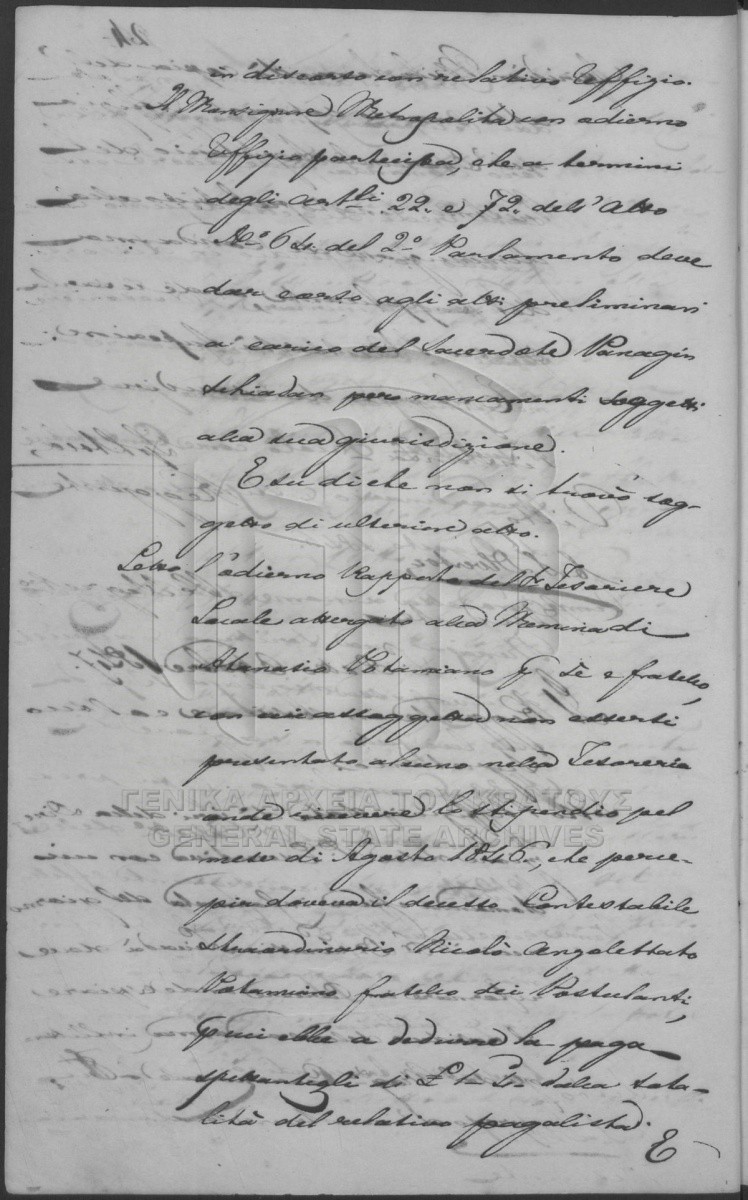 24
in discorso con relativo Uffizio.
Il Monsignore Metropolita con odierno
Uffizio partecipa, che a termini
degli Artli. 22. e 72. dell'Atto
No. 64. del 2o. Parlamento deve
dar corso agli atti preliminari
a carico del Sacerdote Panagin
Schiadan pero mancamenti soggetti
alla sua giurisdizione.
E su di che non si trovò sog-
getto di ulteriore atto.
Letto l'odierno Rapporto del Sr. Tesoriere
Locale attergato alla Memoria di
Atanasio Potamiano per se e fratello,
con cui assoggetta non essersi
presentato alcuno nella Tesoreria
onde ricevere lo stipendio pel
mese di Agosto 1846., che perce-
pir doveva il decesso Contestabile
straordinario Nicolò Angolettato
Potamiano fratello dei Postulanti,
per cui ebbe a dedurne la paga
spettantegli di £ 1- dalla tota-
lità del relativo pagalista.
E
ΓΕΝΙΚΑ ΑΡΧΕΙΑ ΤΟΥ ΚΡΑΤΟΥΣ
GENERAL STATE ARCHIVES